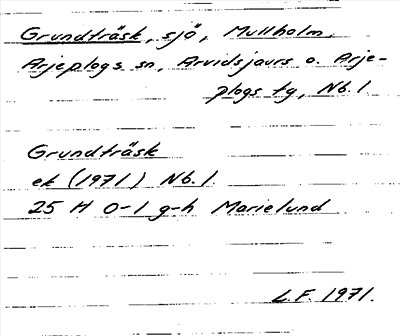 Grundträsk, sjö, Mullholm,
Arjeplogs sn, Arvidsjaurs o. Arje-
plogs tg, Nb. l.
Grundträsk
ek (1971) Nb. l.
25 H 0-1 g-h Marielund
L.F. 1971.